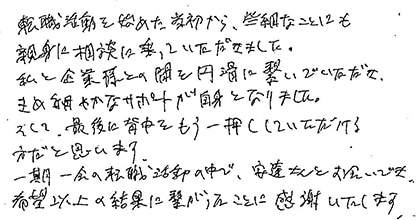 転職活動を始めた当初から、些細なことにも
親身に相談に乗っていただきました。
私と企業様との間を円滑に繋いでいただき、
きめ細やかなサポートが自身となりました。
そして、最後に背中をもう一押ししていただける
方だと思います。
一期一会の転職活動の中で、安達さんとお会いでき、
希望以上の結果に繋がったことに感謝いたします